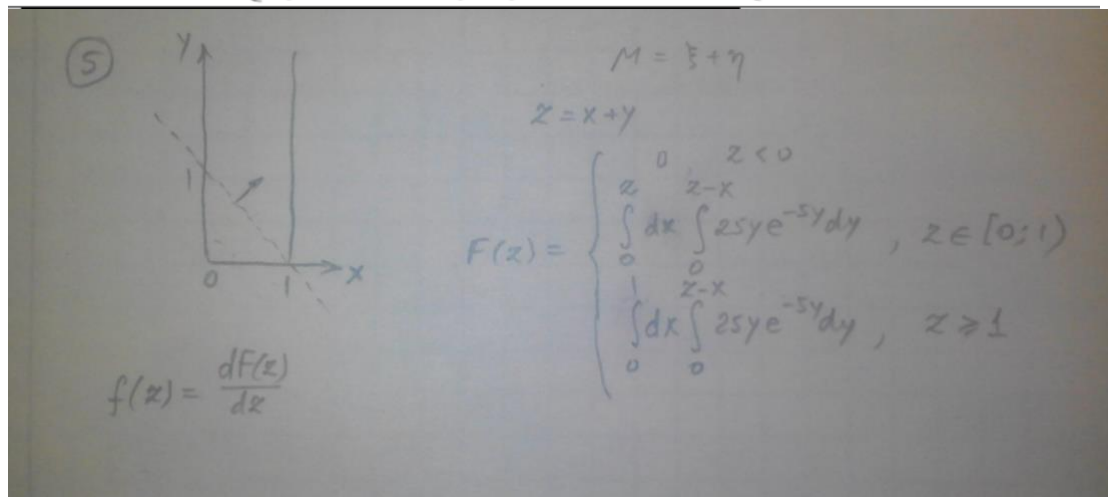 5
Y
1
0
1
X
M = ξ + η
z = x + y
F(z) = { 0 z < 0
∫₀ᶻ dx ∫₀ᶻ⁻ˣ 25ye⁻⁵ʸdy , z ∈ [0; 1)
∫₀¹ dx ∫₀ᶻ⁻ˣ 25ye⁻⁵ʸdy , z ⩾ 1
f(z) = dF(z)/dz